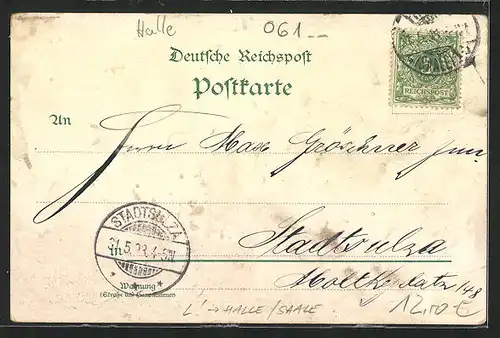 Halle 061
Deutsche Reichspost
Postkarte
REICHSPOST
An
Herrn Max Gröschner jun.
STADTSULZA
in Stadtsulza
Wohnung
(Straße und Hausnummer)
L' → HALLE/SAALE 12,00 €